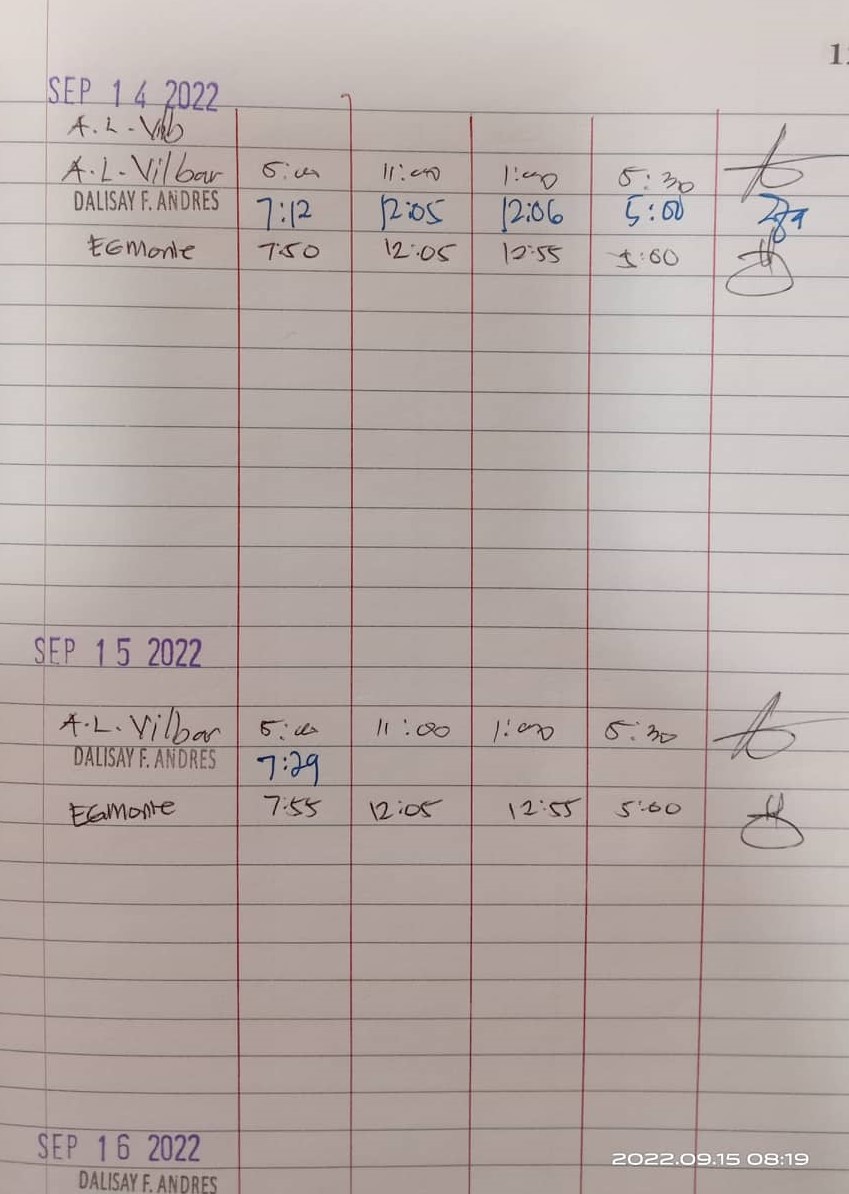 SEP 14 2022
A.L-Vilb
A.L-Vilbar 5:00 11:00 1:00 5:30
DALISAY F. ANDRES 7:12 12:05 12:06 5:00
EGMonte 7:50 12:05 12:55 5:00
SEP 15 2022
A.L.Vilbar 5:00 11:00 1:00 5:30
DALISAY F. ANDRES 7:29
EGMonte 7:55 12:05 12:55 5:00
SEP 16 2022
2022.09.15 08:19
DALISAY F. ANDRES